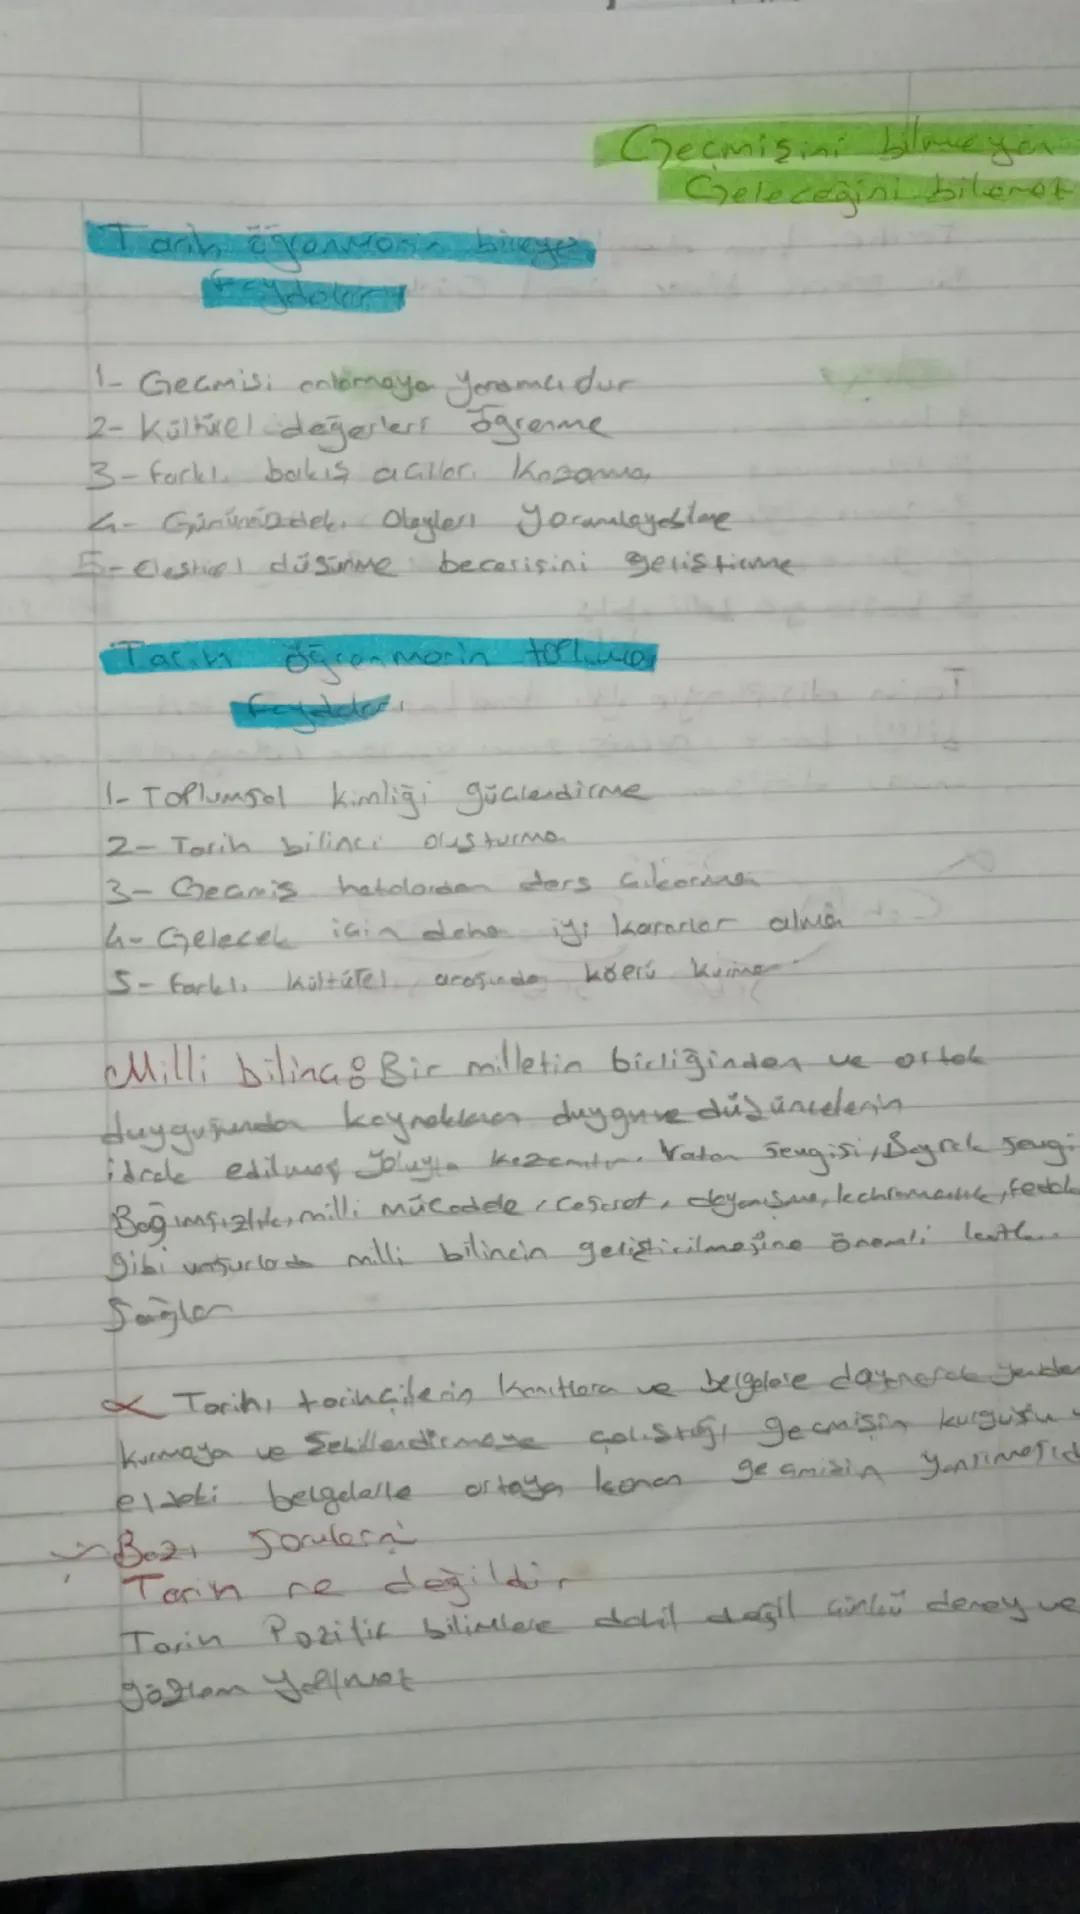 Geçmişini bilmeyen
Geleceğini bilemez
Tarih öğrenmenin bireye
Faydaları
1- Geçmişi anlamaya yardımcıdur
2- Kültürel değerleri öğrenme
3- farklı bakış açıları Kazanma
4- Günümüzdeki Olayları yorumlayabilme
5- eleştirel düşünme becerisini geliştirme
Tarih öğrenmenin topluma
faydaları
1- Toplumsal kimliği güçlendirme
2- Tarih bilinci oluşturma
3- Geçmiş hatalardan ders çıkarma
4- Gelecek için daha iyi kararlar alma
5- farklı kültürel arasında köprü kurma
Milli bilinç: Bir milletin birliğinden ve ortak
duygusundan kaynaklanan duygu ve düşüncelerin
idrak edilmesi yoluyla kazanılır. Vatan sevgisi, Bayrak sevgi
Bağımsızlık, milli mücadele, cesaret, dayanışma, kahramanlık, fedak
gibi unsurlarda milli bilincin geliştirilmesine önemli katkı
Sağlar
Tarih, tarihçilerin kanıtlara ve belgelere dayanarak yeniden
kurmaya ve Şekillendirmeye çalıştığı geçmişin kurgusu
eldeki belgelerle ortaya konan geçmişin yansımasıd
Bazı soruların
Tarih ne değildir
Tarih Pozitif bilimlere dahil değil çünkü deney ve
gözlem yapılmaz